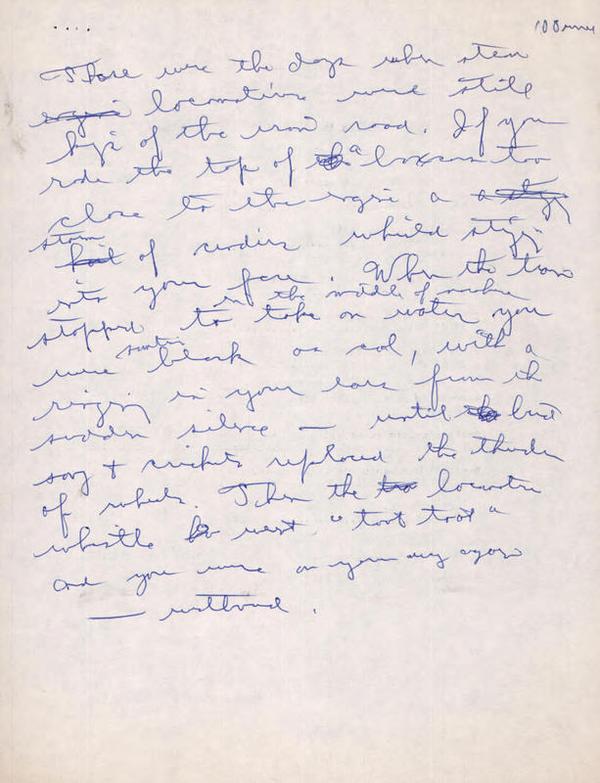 ....
Those were the days when steam
engine locomotives were still
kings of the iron road. If you
rode the top of the a boxcar too
close to the engine a
storm
hail of cinders whirled
into your face. When the train
in the middle of nowhere
stopped to take on water you
were black as coal, with a
ringing in your ears from the
sudden silence — until bird
song + crickets replaced the thunder
of wheels. Then the locomotive
whistle went "toot toot"
and you were on your way again
— westbound.